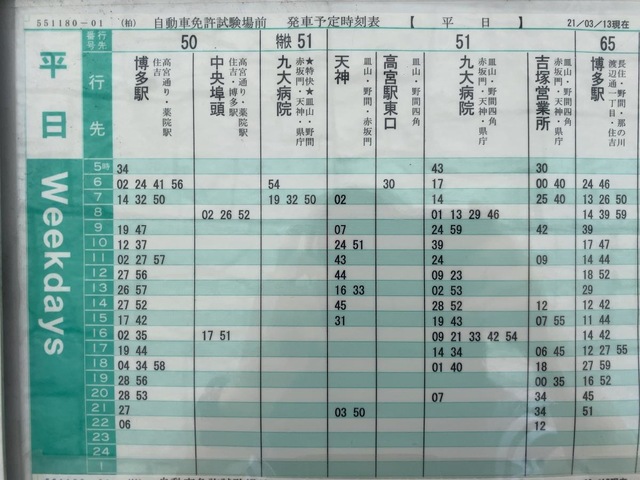 551180-01 (柏) 自動車免許試験場前 発車予定時刻表 【 平 日 】 21/03/13現在
行先番号 50 特快51 51 65
平日 Weekdays
行先
博多駅 高宮通り・薬院駅 住吉
中央埠頭 高宮通り・薬院駅 住吉・博多駅
九大病院 ★特快★皿山・野間 赤坂門・天神・県庁
天神 皿山・野間・赤坂門
高宮駅東口 皿山・野間四角
九大病院 皿山・野間四角 赤坂門・天神・県庁
吉塚営業所 皿山・野間四角 赤坂門・天神・県庁
博多駅 長住・野間・那の川 渡辺通一丁目・住吉
5時 34 43 30
6 02 24 41 56 54 30 17 00 40 24 46
7 14 32 50 19 32 50 02 14 25 40 13 26 50
8 02 26 52 01 13 29 46 14 39 59
9 19 47 07 24 59 42 39
10 12 37 24 51 39 17 47
11 02 27 57 43 24 09 14 44
12 27 56 44 09 23 18 52
13 26 57 16 33 02 53 29
14 27 52 45 28 52 12 12 42
15 17 42 31 19 43 07 55 11 44
16 02 35 17 51 09 21 33 42 54 14 42
17 19 44 14 34 06 45 12 27 55
18 04 34 58 01 40 18 27 59
19 28 56 00 35 16 52
20 28 53 07 34 45
21 27 03 50 34 51
22 06 12
23
24
1